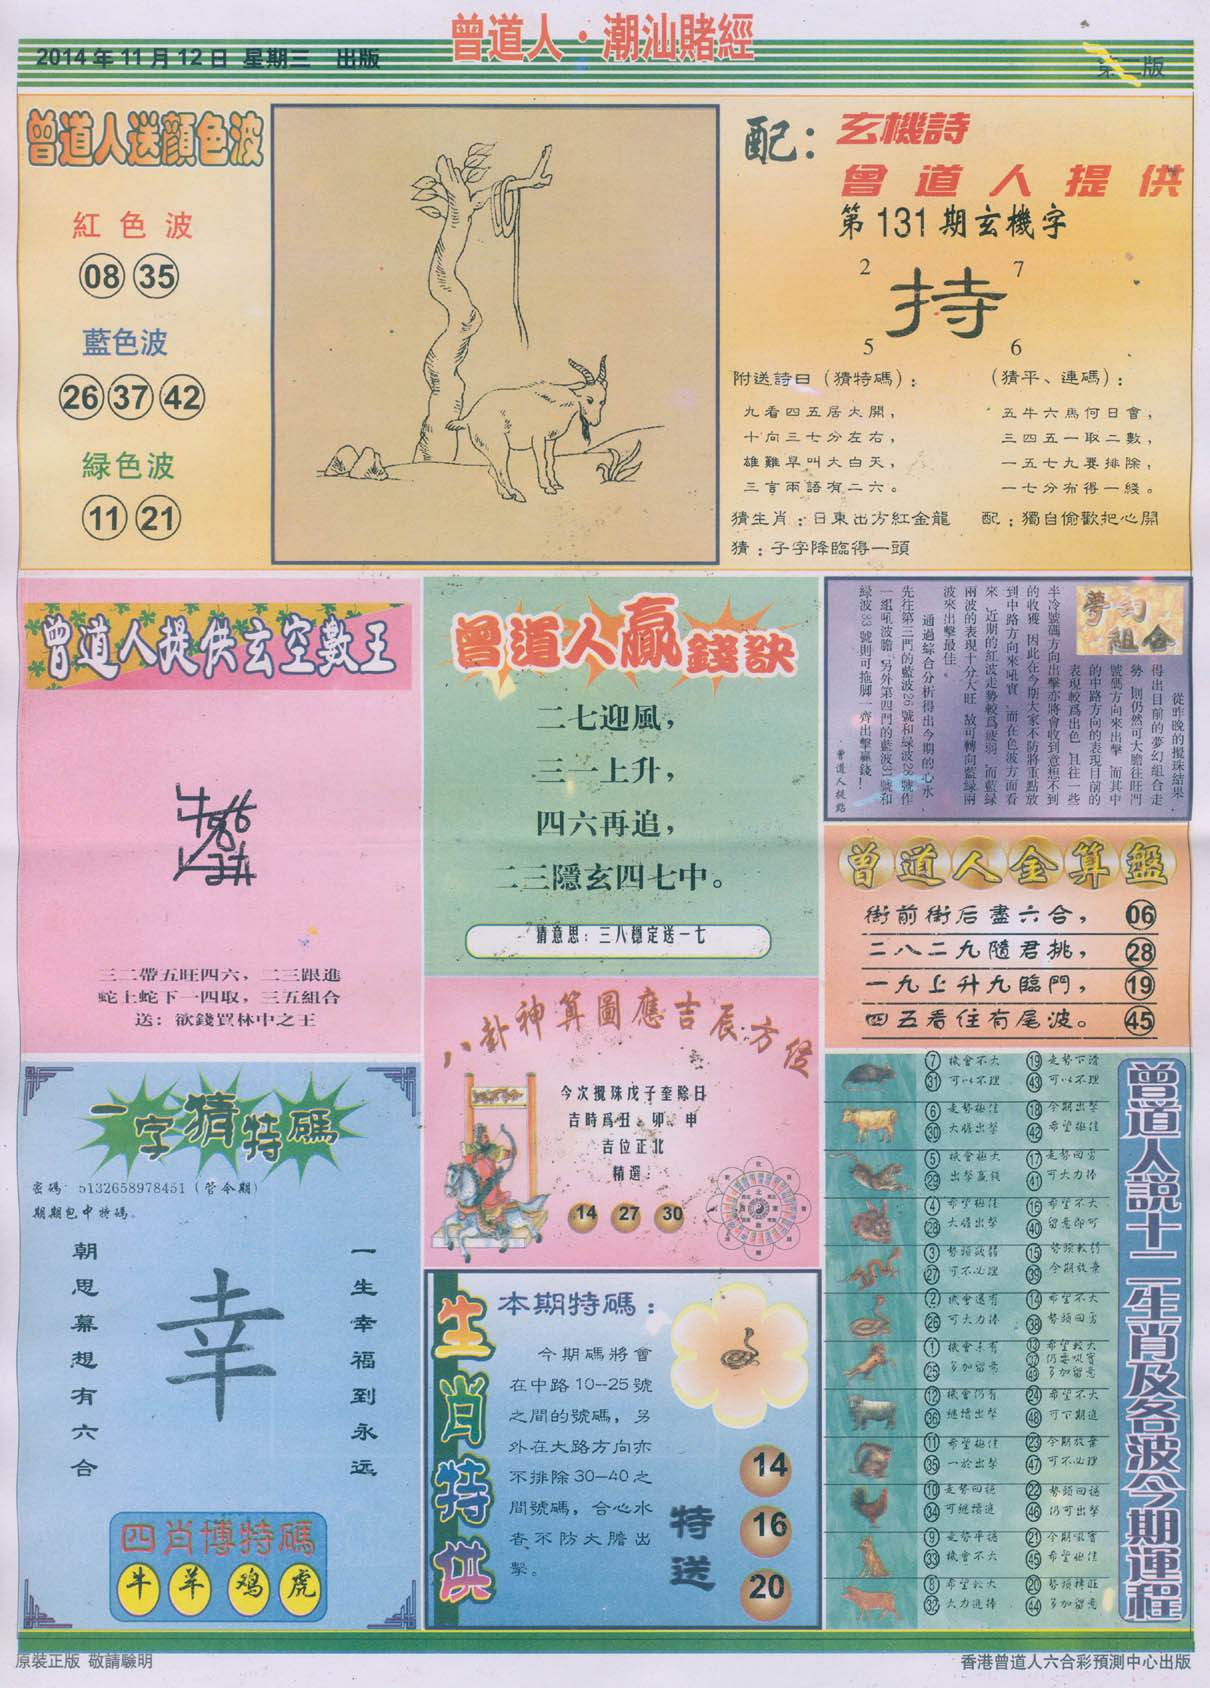 曾道人·潮汕賭經
2014年11月12日 星期三 出版
第二版
曾道人送顔色波
紅色波
08 35
藍色波
26 37 42
緑色波
11 21
配:
玄機詩
曾道人提供
第131期玄機字
2 7
持
5 6
附送詩曰（猜特碼）:
九看四五居大開，
十向三七分左右，
雄雞早叫大白天，
三言兩語有二六。
（猜平、連碼）:
五牛六馬何日會，
三四五一取二數，
一五七九要排除，
一七分布得一綫。
猜生肖：日東出方紅金龍
配：獨自偷歡把心開
猜：子字降臨得一頭
曾道人提供玄空數王
三二帶五旺四六，二三跟進
蛇上蛇下一四取，三五組合
送：欲錢買林中之王
曾道人贏錢訣
二七迎風，
三一上升，
四六再追，
二三隱玄四七中。
猜意思：三八穩定送一七
夢幻組合
從昨晚的攪珠結果，
得出目前的夢幻組合走
勢，則仍然可大膽往旺門
號碼方向來出擊，而其中
的中路方向的表現目前的
表現較爲出色，且往一些
半冷號碼方向出擊亦將會收到意想不到
的收獲，因此在今期大家不防將重點放
到中路方向來吼實，而在色波方面看
來，近期的紅波走勢較爲疲弱，而藍緑
兩波的表現十分大旺，故可轉向藍緑兩
波來出擊最佳。
通過綜合分析得出今期的心水
先往第三門的藍波26號和緑波28號作
一組吼波膽，另外第四門的藍波31號和
緑波33號則可拖脚一齊出擊贏錢！
曾道人提點
曾道人金算盤
街前街后盡六合， 06
二八二九隨君挑， 28
一九上升九臨門， 19
四五看住有尾波。 45
八卦神算圖應吉辰方位
今次攪珠戊子奎除日
吉時爲丑、卯、申
吉位正北
精選：
14 27 30
一字猜特碼
密碼：5132658978451（管今期）
期期包中特碼。
朝思幕想有六合
幸
一生幸福到永远
四肖博特碼
牛 羊 鸡 虎
生肖特供
本期特碼：
今期碼將會
在中路10--25號
之間的號碼，另
外在大路方向亦
不排除30--40之
間號碼，合心水
者不防大膽出
擊。
特送
14
16
20
曾道人説十二生肖及各波今期運程
7 機會不大 19 走勢下滑
31 可以不理 43 可以不理
6 走勢極佳 18 今期出擊
30 大膽出擊 42 希望極佳
5 機會極大 17 走勢回勇
29 出擊贏錢 41 可大力捧
4 希望極佳 16 希望不大
28 大膽出擊 40 留意即可
3 勢頭疲弱 15 勢頭較弱
27 可不必理 39 今期放棄
2 機會還有 14 希望不大
26 可大力捧 38 勢頭回勇
1 機會未有 13 希望較大
25 多加留意 37 仍要吼實
49 多加留意
12 機會仍有 24 希望不大
36 繼續出擊 48 可下期進
11 希望極佳 23 今期放棄
35 一於出擊 47 可不必理
10 走勢回穩 22 勢頭回穩
34 可繼續進 46 仍可出擊
9 走勢平穩 21 今期吼實
33 機會不大 45 希望極佳
8 希望較大 20 勢頭轉旺
32 大力進捧 44 多加留意
原裝正版 敬請驗明
香港曾道人六合彩預測中心出版